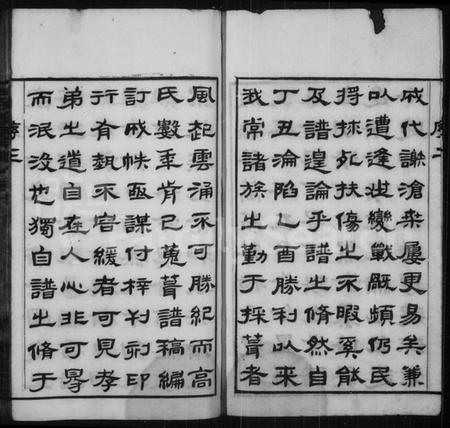 成代謝滄桒屢更易矣兼
以遭逢世變戰厩頻仍民
捋捄死扶傷之不暇奚能
及譜遑論乎譜之脩然自
丁丑淪陷乙酉勝利以來
我常諸族之勤于採葺者
序二
風起雲涌不可勝紀而高
氏數年肯已蒐葺譜稿編
訂成帙亟謀付梓刊刷印
行有孰不容緩者可見孝
弟之道自在人心非可㝵
而泯没也獨自譜之脩于
序三